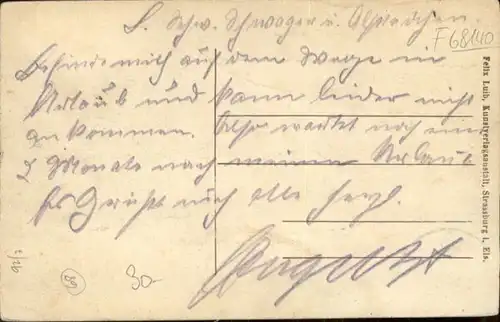 L. Schw. Schwager u.
F68140
Befinde mich auf dem Wege in
Urlaub und kann leider nicht
zu kommen. Also wartet noch ein
2 Monate nach meinem Urlaub
Es Grüßt euch alle herzl.
August
30-
30
Felix Luib, Kunstverlagsanstalt, Strassburg i. Els.